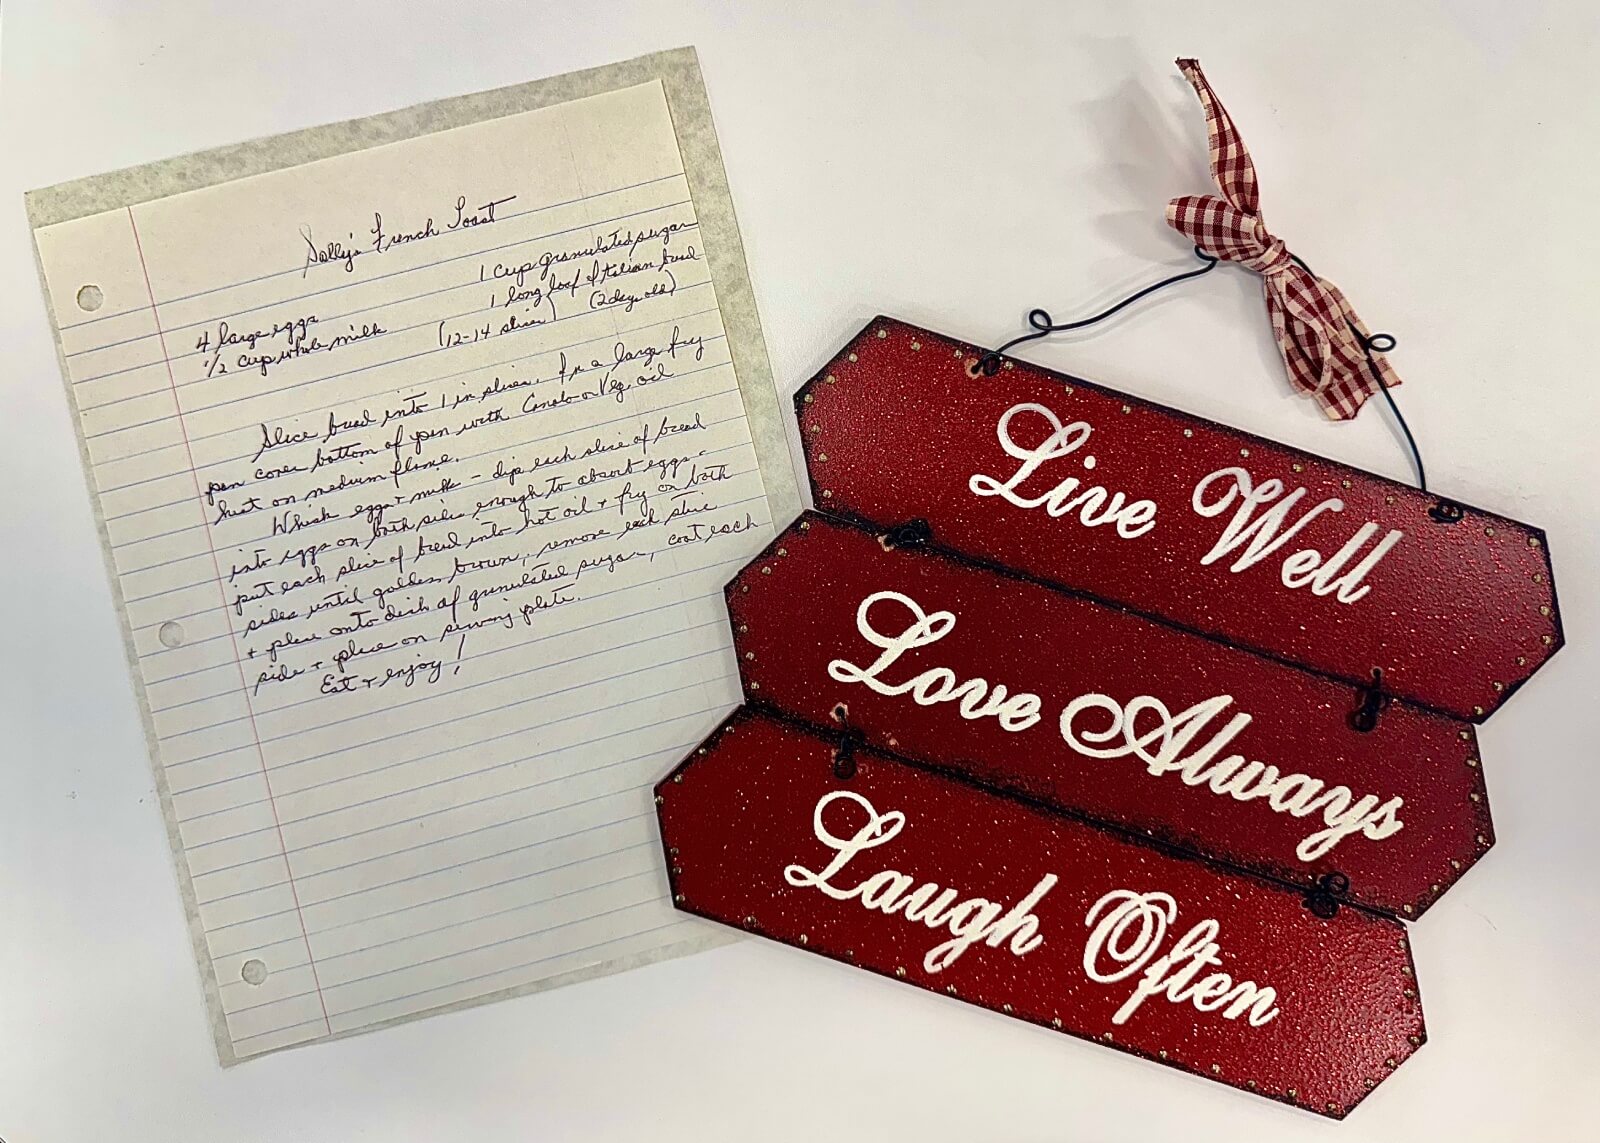 Sally's French Toast
4 large eggs
1/2 cup whole milk
1 cup granulated sugar
1 long loaf of Italian bread
(12-14 slices) (2 days old)
Slice bread into 1 in slices. In a large fry
pan cover bottom of pan with Canola or Veg. oil
heat on medium flame.
Whisk eggs + milk - dip each slice of bread
into eggs on both sides enough to absorb eggs -
put each slice of bread into hot oil + fry on both
sides until golden brown, remove each slice
+ place onto dish of granulated sugar, coat each
side + place on serving plate.
Eat + enjoy!
Live Well
Love Always
Laugh Often